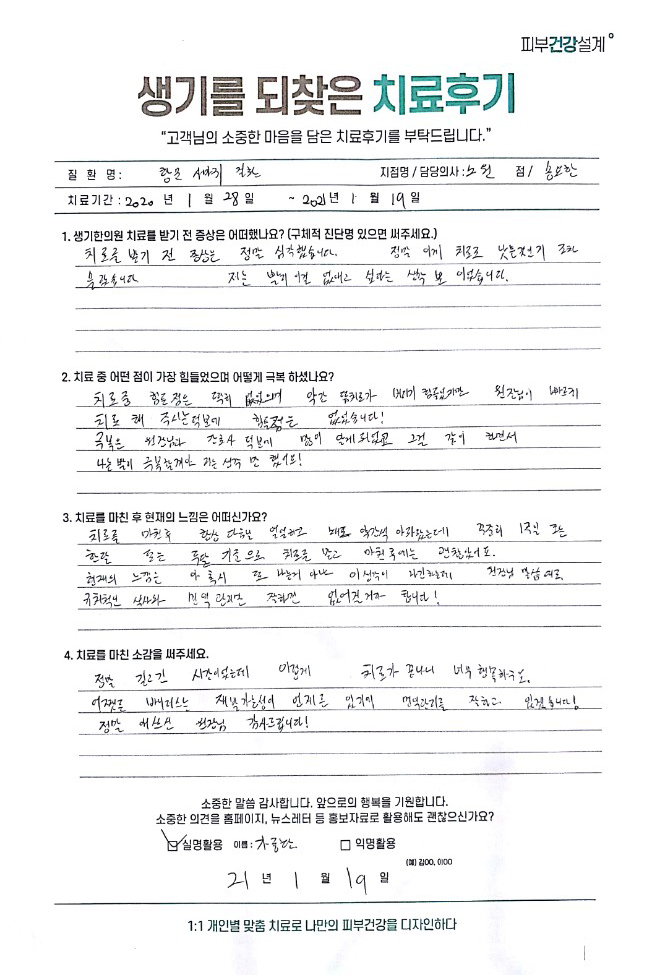 피부건강설계
생기를 되찾은 치료후기
“고객님의 소중한 마음을 담은 치료후기를 부탁드립니다.”
질 환 명 : 지점명 / 담당의사 : 점 /
치료기간 : 2020 년 1 월 28 일 ~ 2021 년 1 월 19 일
1. 생기한의원 치료를 받기 전 증상은 어떠했나요? (구체적 진단명 있으면 써주세요.)
치료를 받기 전 증상은 정말 심각했습니다. 정말 이게 치료로 낫는것인가 조차
몰랐습니다 저는 빨리 이걸 없애고 싶다는 생각 뿐 이었습니다.
2. 치료 중 어떤 점이 가장 힘들었으며 어떻게 극복 하셨나요?
치료중 힘든점은 딱히 없었으며 약간 치료가 원장님이 빠르게
치료 해 주시는 덕분에 힘든점은 없었습니다!
극복은 원장님과 간호사 덕분에 많이 되었고 그걸 같이 하면서
극복할거라 라는 생각 만 했어요!
3. 치료를 마친 후 현재의 느낌은 어떠신가요?
치료를 마친후 항상 다음날 약간씩 아파왔는데 1주일 또는
한달 기준으로 치료를 받고 마친후에는 괜찮았어요.
현재의 느낌은 아 혹시 또 나는게 아닌 이생각이 원장님 말씀대로
규칙적인 식사와 면역 관리만 잘하면 없어질거라 합니다!
4. 치료를 마친 소감을 써주세요.
정말 길고긴 시간이었는데 이렇게 치료가 끝나니 너무 행복하구요.
어쨌든 바이러스는 재발가능성이 언제든 있기에 면역관리를 잘하고 있겠습니다!
정말 애쓰신 원장님 감사드립니다!
소중한 말씀 감사합니다. 앞으로의 행복을 기원합니다.
소중한 의견을 홈페이지, 뉴스레터 등 홍보자료로 활용해도 괜찮으신가요?
실명활용 이름 : □ 익명활용
(예) 김OO, 이OO
21 년 1 월 19 일
1:1 개인별 맞춤 치료로 나만의 피부건강을 디자인하다